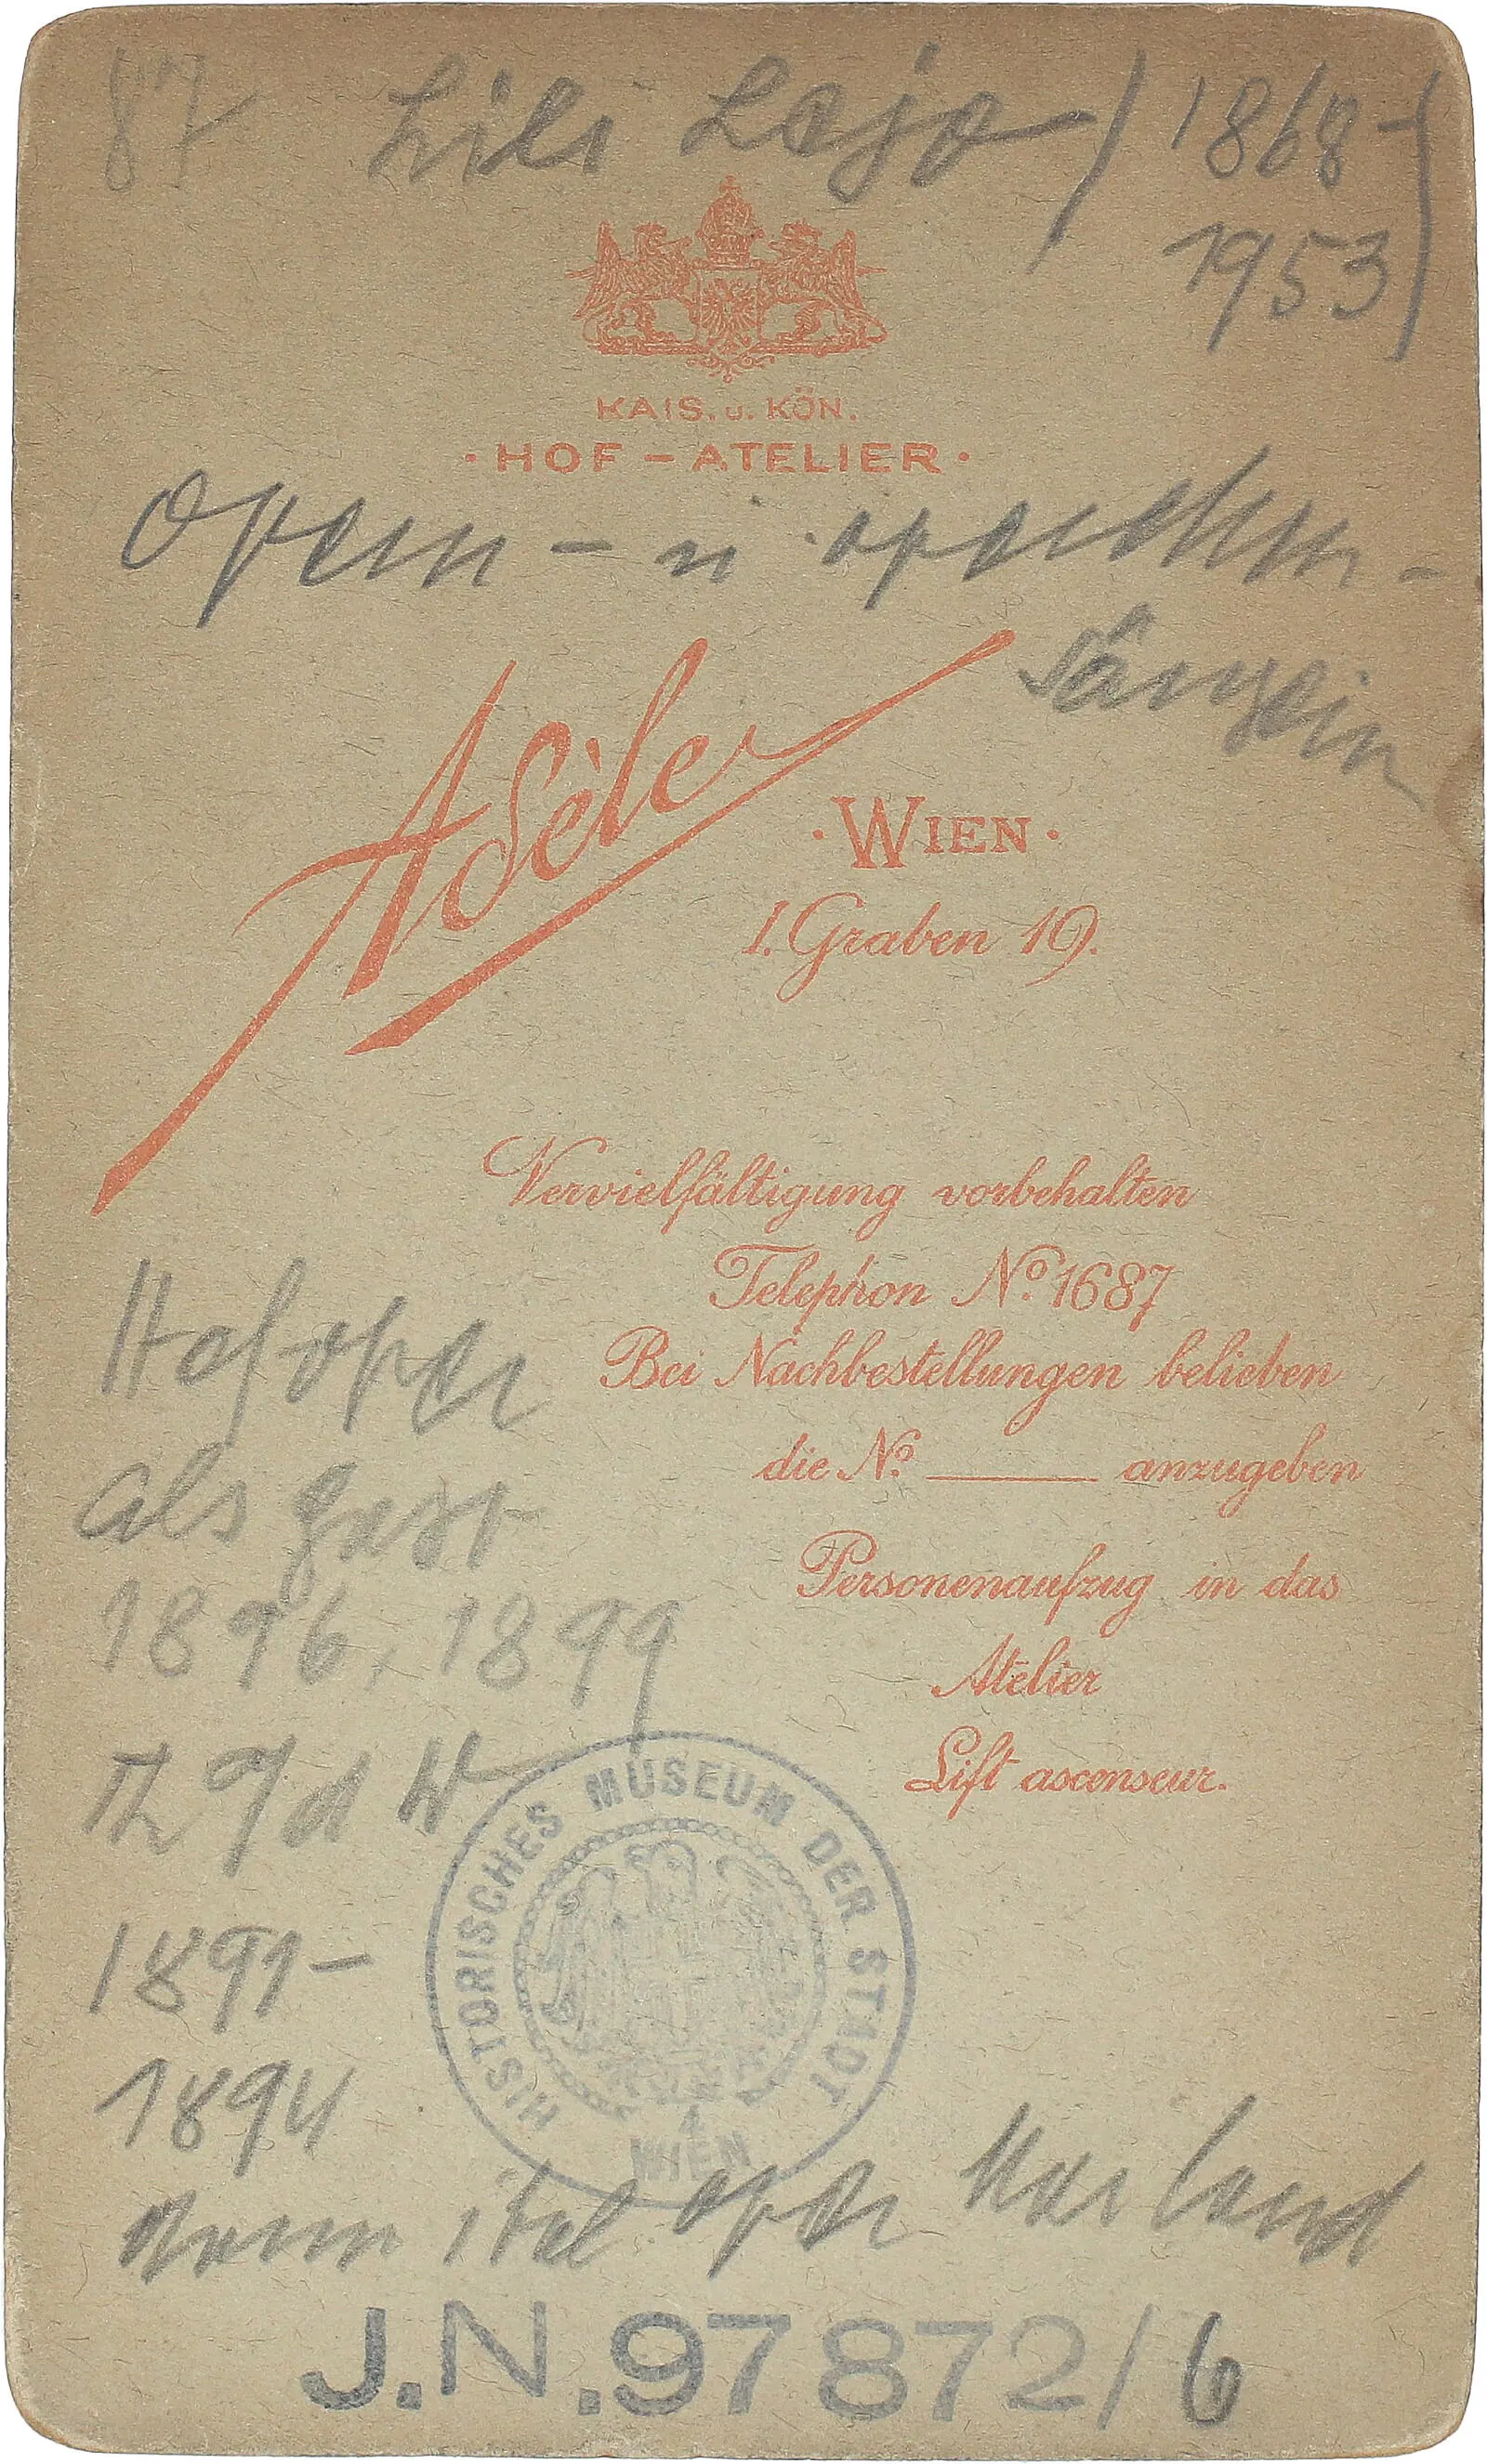 87 Lili Lejo (1868-
1953)
KAIS. u. KÖN.
· HOF – ATELIER ·
Opern - u operetten -
sängerin
Adèle
· WIEN ·
I. Graben 19.
Vervielfältigung vorbehalten
Telephon No. 1687
Bei Nachbestellungen belieben
die No. ______ anzugeben
Personenaufzug in das
Atelier
Lift ascenseur.
Hofoper
als Gast
1896, 1899
Th a d W
1891-
1894
dann ital. oper Mailand
HISTORISCHES MUSEUM DER STADT
WIEN
J.N. 97872/6